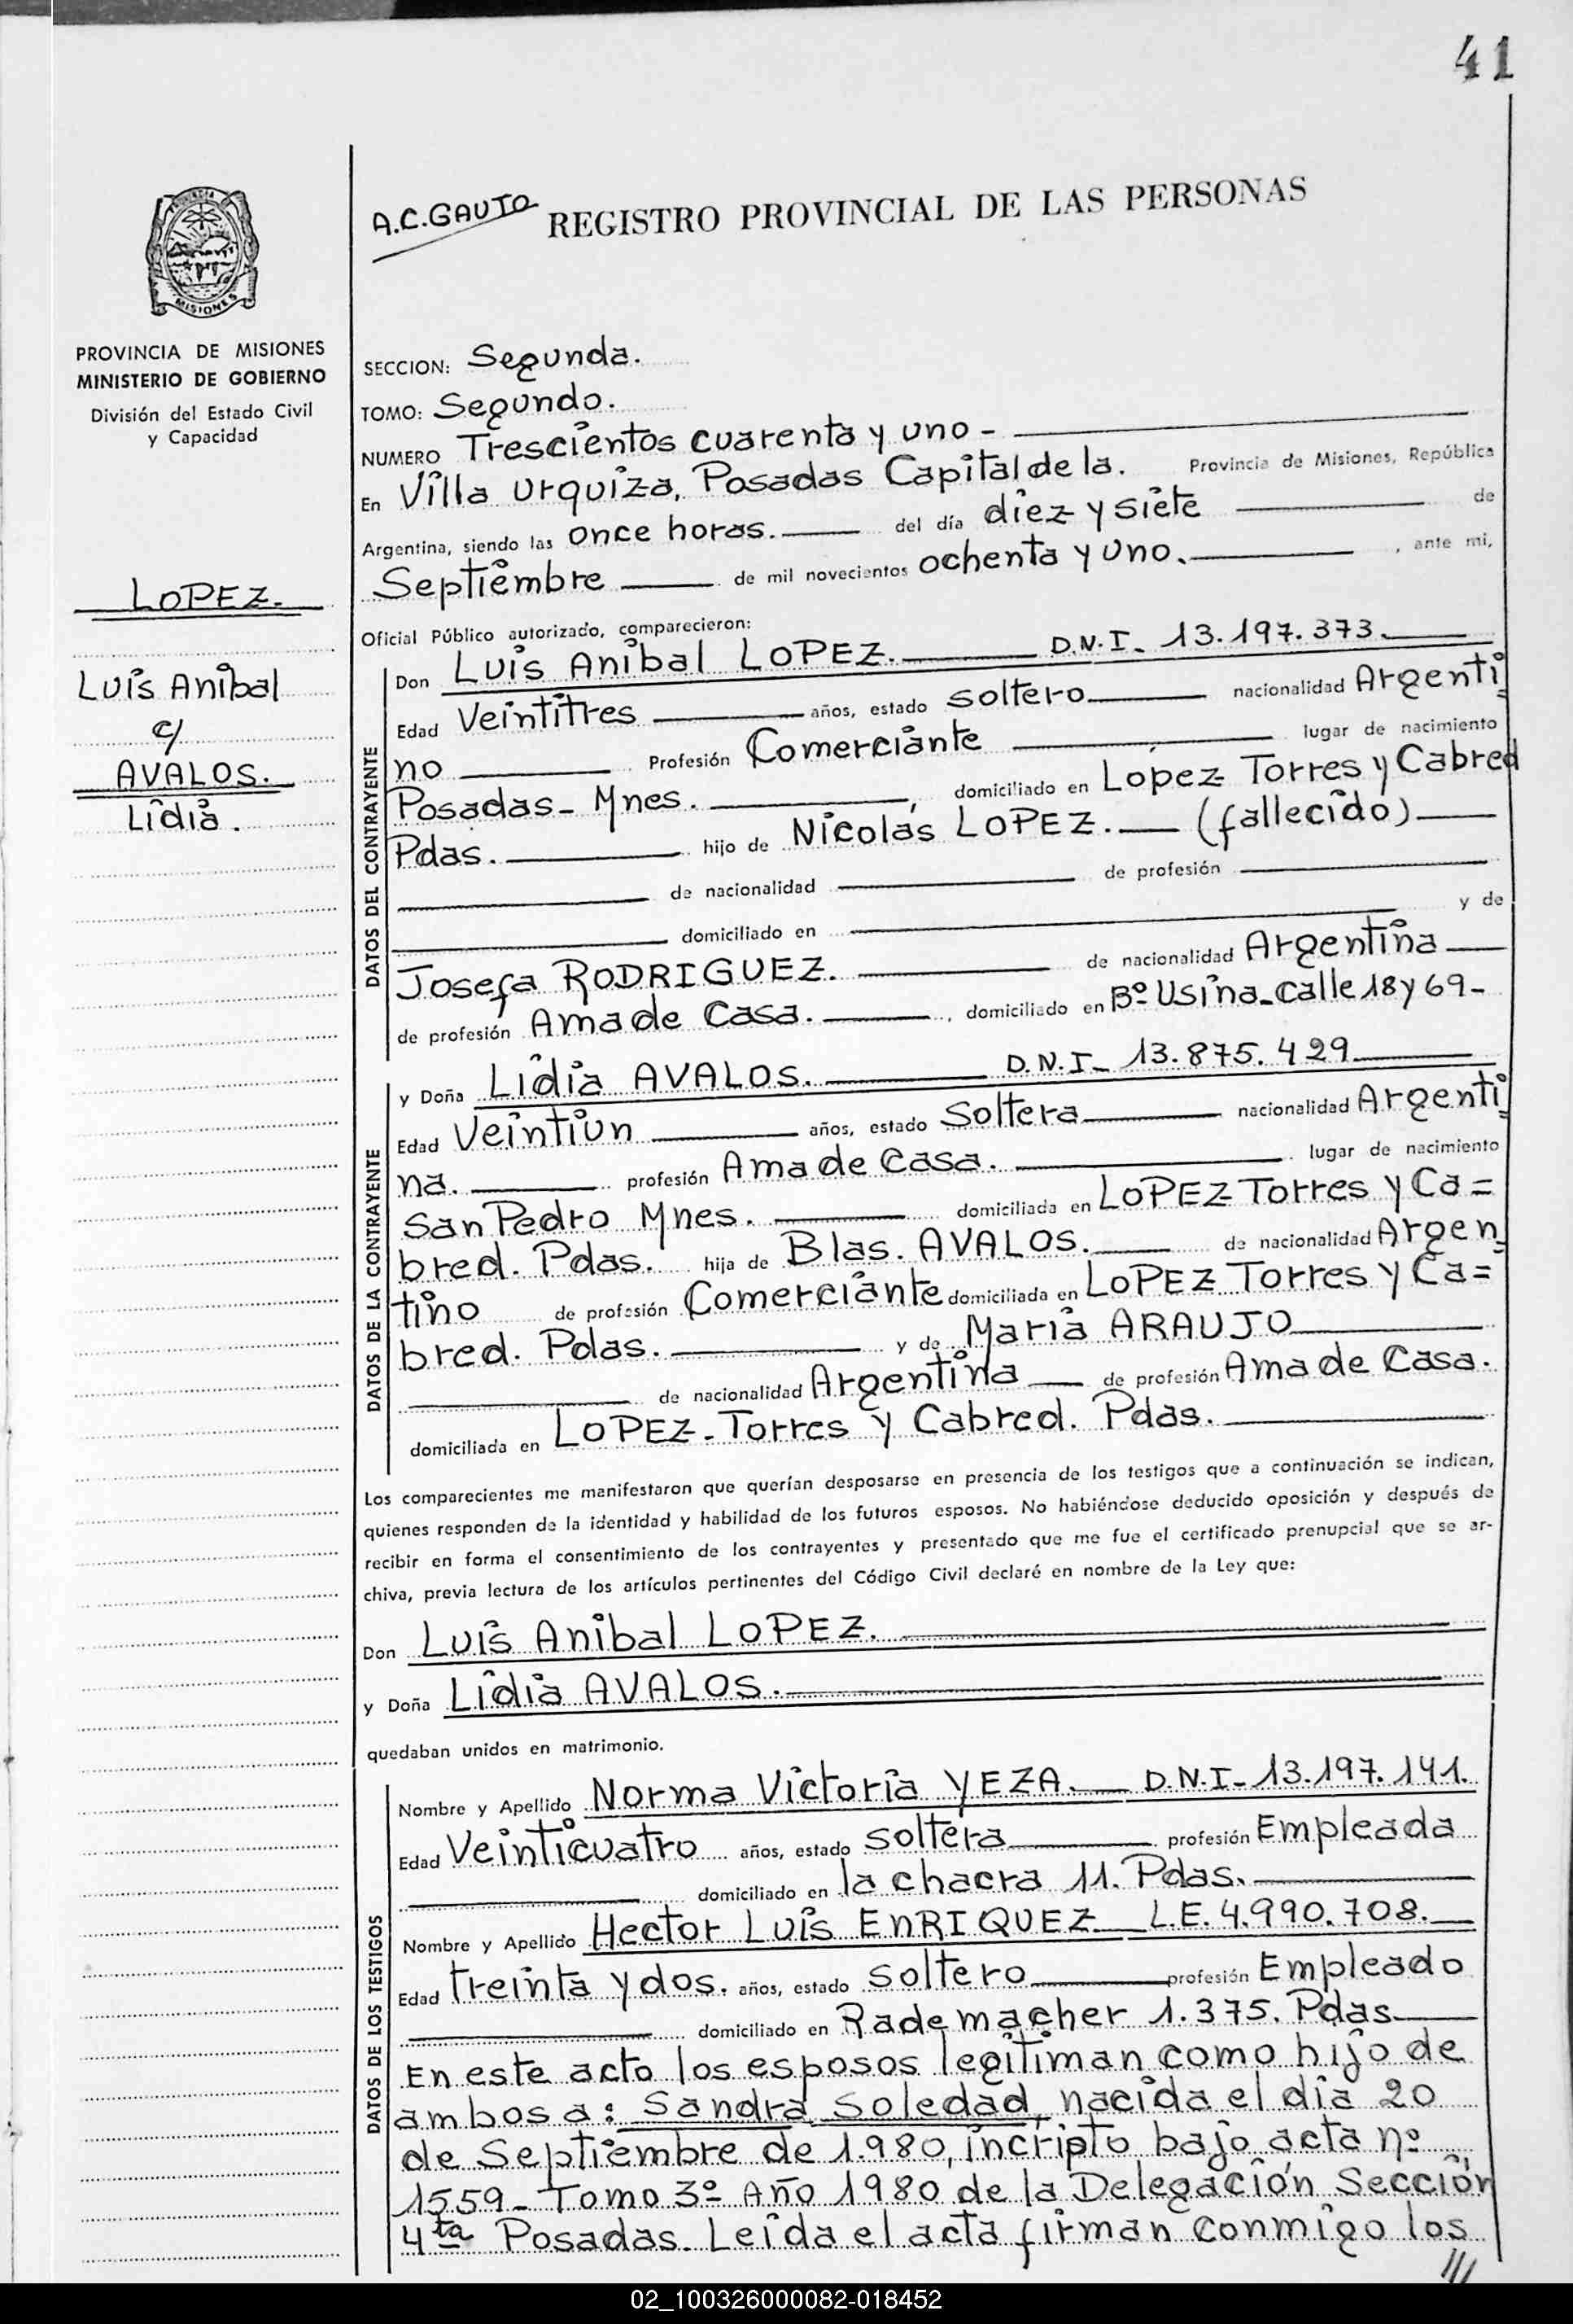 41
MISIONES
PROVINCIA DE MISIONES
MINISTERIO DE GOBIERNO
División del Estado Civil
y Capacidad
LOPEZ.
Luis Anibal
c/
AVALOS.
Lidia.
A.C.GAUTO REGISTRO PROVINCIAL DE LAS PERSONAS
SECCION: Segunda.
TOMO: Segundo.
NUMERO Trescientos cuarenta y uno -
En Villa Urquiza, Posadas Capital de la. Provincia de Misiones, República
Argentina, siendo las once horas. del día diez y siete de
Septiembre de mil novecientos ochenta y uno. , ante mi,
Oficial Público autorizado, comparecieron:
DATOS DEL CONTRAYENTE
Don Luis Anibal LOPEZ. D.N.I. 13.197.373.
Edad Veintitres años, estado soltero nacionalidad Argenti
no Profesión Comerciante lugar de nacimiento
Posadas - Mnes. , domiciliado en López Torres y Cabred
Pdas. hijo de Nicolás LOPEZ. (fallecido)
de nacionalidad de profesión
domiciliado en y de
Josefa RODRIGUEZ. de nacionalidad Argentina
de profesión Ama de Casa. , domiciliado en Bº Usina - calle 18 y 69 -
DATOS DE LA CONTRAYENTE
y Doña Lidia AVALOS. D.N.I- 13.875.429
Edad Veintiun años, estado Soltera nacionalidad Argenti
na. profesión Ama de Casa. lugar de nacimiento
San Pedro Mnes. domiciliada en LOPEZ Torres y Ca=
bred. Pdas. hija de Blas. AVALOS. de nacionalidad Argen
tino de profesión Comerciante domiciliada en LOPEZ Torres y Ca=
bred. Pdas. y de Maria ARAUJO
de nacionalidad Argentina de profesión Ama de Casa.
domiciliada en LOPEZ - Torres y Cabred. Pdas.
Los comparecientes me manifestaron que querían desposarse en presencia de los testigos que a continuación se indican,
quienes responden de la identidad y habilidad de los futuros esposos. No habiéndose deducido oposición y después de
recibir en forma el consentimiento de los contrayentes y presentado que me fue el certificado prenupcial que se ar-
chiva, previa lectura de los artículos pertinentes del Código Civil declaré en nombre de la Ley que:
Don Luis Anibal LOPEZ.
y Doña Lidia AVALOS.
quedaban unidos en matrimonio.
DATOS DE LOS TESTIGOS
Nombre y Apellido Norma Victoria YEZA. D.N.I- 13.197.141.
Edad Veinticuatro años, estado soltera profesión Empleada
domiciliado en la chacra 11. Pdas.
Nombre y Apellido Hector Luis ENRIQUEZ L.E. 4.990.708.
Edad treinta y dos. años, estado soltero profesión Empleado
domiciliado en Rademacher 1.375. Pdas
En este acto los esposos legitiman como hijo de
ambos a: Sandra Soledad, nacida el dia 20
de Septiembre de 1.980, incripto bajo acta nº
1559 - Tomo 3º Año 1980 de la Delegación Sección
4ta Posadas. Leida el acta firman conmigo los
///
02_100326000082-018452